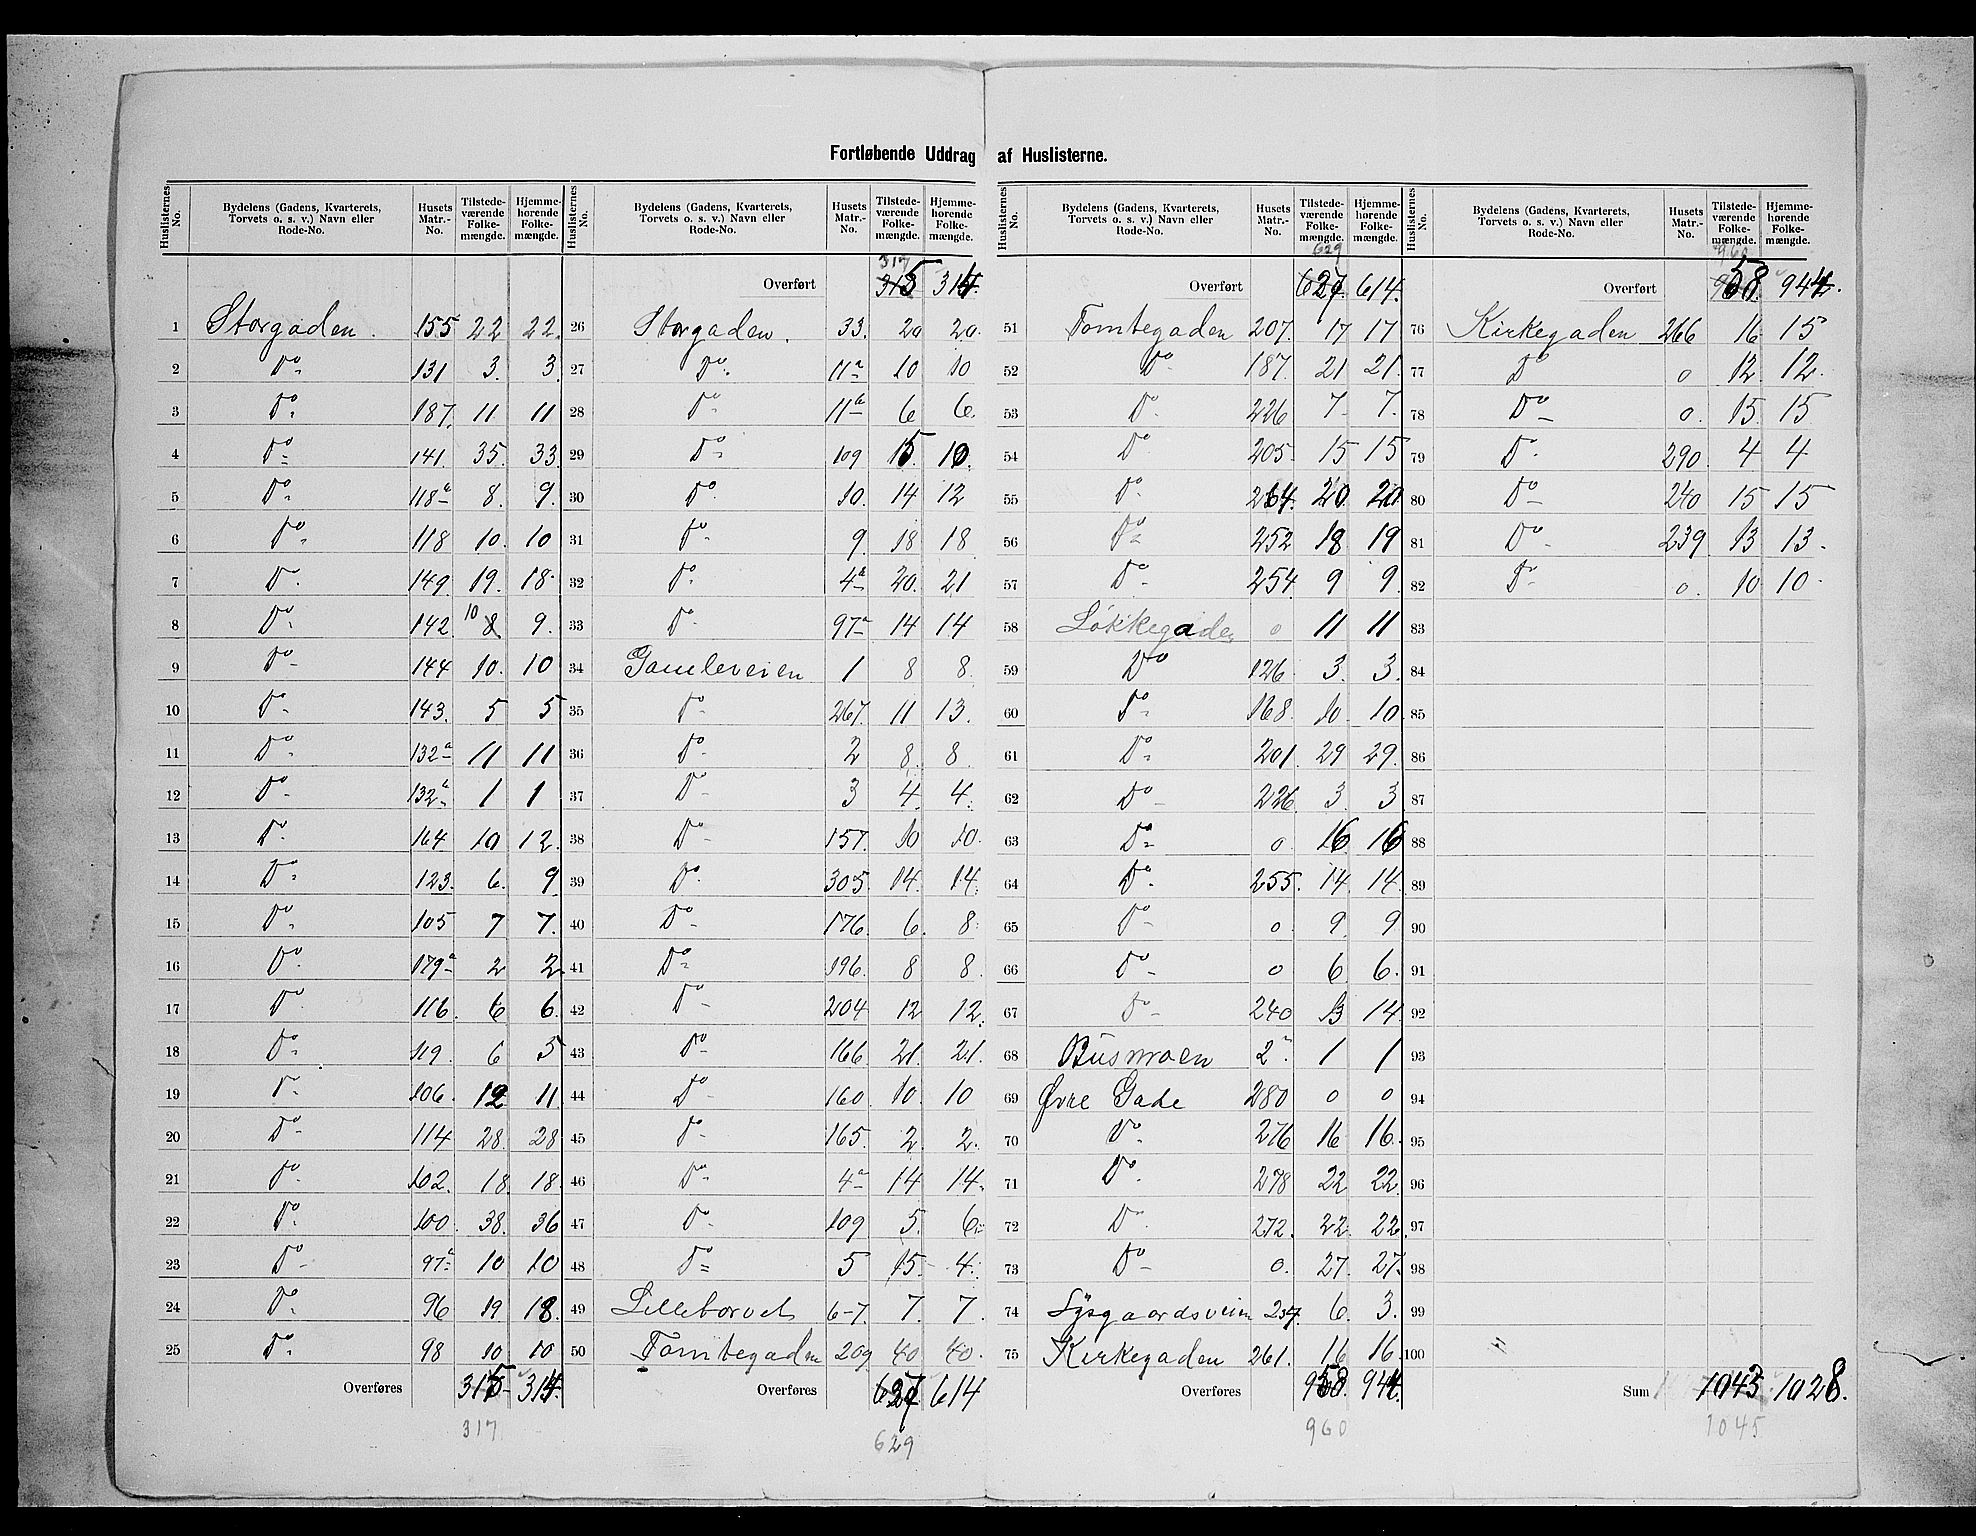 Fortløbende Uddrag af Huslisterne.
Huslisternes No. | Bydelens (Gadens, Kvarterets, Torvets o. s. v.) Navn eller Rode-No. | Husets Matr.-No. | Tilstedeværende Folkemængde. | Hjemmehørende Folkemængde.
1 Storgaden. 155 22 22.
2 Do 131 3. 3.
3 Do 187. 11 11
4 Do 141. 35. 33.
5 Do 118b 8. 9.
6 Do 118 10. 10
7 Do 149. 19. 18.
8 Do 142 10 8 9.
9 Do 144 10. 10
10 Do 143. 5 5
11 Do 132a 11 11
12 Do 132b 1 1
13 Do 164 10 12.
14 Do 123. 6. 9.
15 Do 105 7 7.
16 Do 179a 2 2.
17 Do 116. 6 6.
18 Do 119. 6 5
19 Do 106. 12 11.
20 Do 114 28. 28
21 Do 102. 18. 18.
22 Do 100. 38. 36
23 Do 97b 10 10
24 Do 96 19 18.
25 Do 98 10. 10
Overføres 315 314.
317
Huslisternes No. | Bydelens (Gadens, Kvarterets, Torvets o. s. v.) Navn eller Rode-No. | Husets Matr.-No. | Tilstedeværende Folkemængde. | Hjemmehørende Folkemængde.
317
Overført 315 314.
26 Storgaden. 33. 20 20.
27 Do 11a 10 10
28 Do 11b 6 6.
29 Do 109 15. 10.
30 Do 10. 14 12
31 Do 9. 18 18
32 Do 4b 20. 21
33 Do 97a 14 14
34 Gamleveien 1 8 8.
35 Do 267. 11 13.
36 Do 2 8. 8.
37 Do 3 4. 4.
38 Do 157. 10 10.
39 Do 305. 14. 14.
40 Do 176. 6. 8.
41 Do 196. 8 8.
42 Do 204 12 12.
43 Do 166. 21. 21.
44 Do 160. 10. 10
45 Do 165. 2. 2.
46 Do 4a 14 14.
47 Do 109 5. 6.
48 Do 5 15. 4.
49 Lilletorvet 6-7 7. 7.
50 Tomtegaden 209 40 40.
Overføres 627 614
629
Huslisternes No. | Bydelens (Gadens, Kvarterets, Torvets o. s. v.) Navn eller Rode-No. | Husets Matr.-No. | Tilstedeværende Folkemængde. | Hjemmehørende Folkemængde.
629
Overført 627. 614.
51 Tomtegaden 207. 17 17
52 Do 187. 21 21.
53 Do 226 7 7.
54 Do 205. 15 15
55 Do 264. 20. 20
56 Do 252 18 19
57 Do 254. 9 9.
58 Løkkegaden 0 11 11
59 Do 126. 3. 3.
60 Do 168. 10. 10.
61 Do 201. 29 29.
62 Do 226. 3. 3
63 Do 0. 16. 16
64 Do 255. 14. 14.
65 Do 0. 9. 9
66 Do 0 6 6.
67 Do 240 13 14
68 Busmoen 2a 1 1
69 Øvre Gade 280 0 0
70 Do 276 16 16.
71 Do 278 22 22.
72 Do 272. 22. 22.
73 Do 0. 27. 27.
74 Lysgaardsveien 237. 6. 3.
75 Kirkegaden 261. 16 16.
Overføres 958. 944.
960
Huslisternes No. | Bydelens (Gadens, Kvarterets, Torvets o. s. v.) Navn eller Rode-No. | Husets Matr.-No. | Tilstedeværende Folkemængde. | Hjemmehørende Folkemængde.
960
Overført 958. 944.
76 Kirkegaden 266 16 15
77 Do 0 12. 12.
78 Do 0. 15. 15
79 Do 290. 4 4
80 Do 240 15 15
81 Do 239. 13 13.
82 Do 0. 10 10.
83
84
85
86
87
88
89
90
91
92
93
94
95
96
97
98
99
100
Sum 1043 1028.
1045